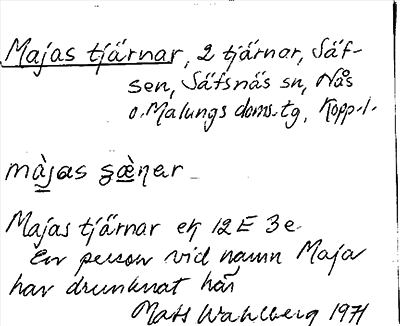 Majas tjärnar, 2 tjärnar, Säf-
sen, Säfsnäs sn, Nås
o. Malungs doms.tg, Kopp.l.
màjas ʂæ̀ɳar
Majas tjärnar ek 12E 3e
En person vid namn Maja
har drunknat här
Mats Wahlberg 1971